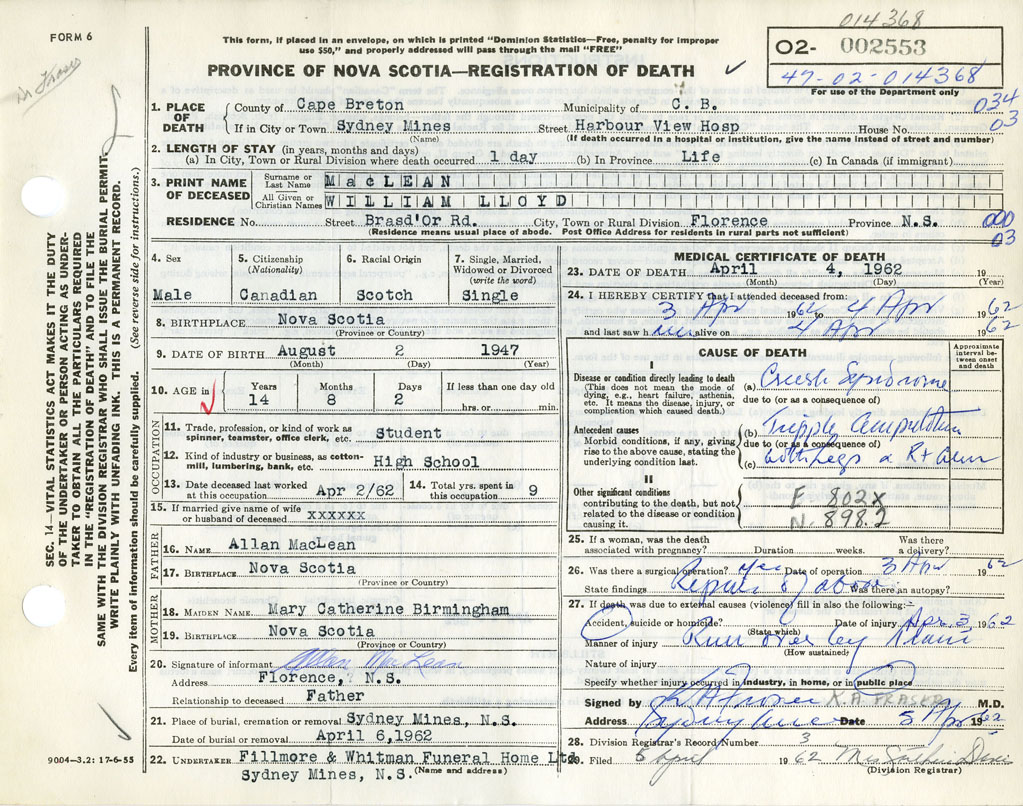 014368
FORM 6
This form, if placed in an envelope, on which is printed "Dominion Statistics—Free, penalty for improper
use $50," and properly addressed will pass through the mail "FREE"
02- 002553
47-02-014368
For use of the Department only
Dr Fraser
PROVINCE OF NOVA SCOTIA—REGISTRATION OF DEATH
1. PLACE OF DEATH
County of Cape Breton Municipality of C. B. 034
If in City or Town Sydney Mines Street Harbour View Hosp House No. 03
(Name) (If death occurred in a hospital or institution, give the name instead of street and number)
2. LENGTH OF STAY (in years, months and days)
(a) In City, Town or Rural Division where death occurred 1 day (b) In Province Life (c) In Canada (if immigrant)
3. PRINT NAME OF DECEASED
Surname or Last Name MacLEAN
All Given or Christian Names WILLIAM LLOYD
RESIDENCE No. Street Brasd'Or Rd. City, Town or Rural Division Florence Province N.S. 000
(Residence means usual place of abode. Post Office Address for residents in rural parts not sufficient) 03
4. Sex
Male
5. Citizenship
(Nationality)
Canadian
6. Racial Origin
Scotch
7. Single, Married,
Widowed or Divorced
(write the word)
Single
8. BIRTHPLACE Nova Scotia
(Province or Country)
9. DATE OF BIRTH August 2 1947
(Month) (Day) (Year)
10. AGE in
Years Months Days If less than one day old
14 8 2 hrs. or min.
OCCUPATION
11. Trade, profession, or kind of work as
spinner, teamster, office clerk, etc. Student
12. Kind of industry or business, as cotton-
mill, lumbering, bank, etc. High School
13. Date deceased last worked
at this occupation Apr 2/62
14. Total yrs. spent in
this occupation 9
15. If married give name of wife
or husband of deceased xxxxxx
FATHER
16. NAME Allan MacLean
17. BIRTHPLACE Nova Scotia
(Province or Country)
MOTHER
18. MAIDEN NAME. Mary Catherine Birmingham
19. BIRTHPLACE Nova Scotia
(Province or Country)
20. Signature of informant Allan MacLean
Address Florence, N.S.
Relationship to deceased Father
21. Place of burial, cremation or removal Sydney Mines, N.S.
Date of burial or removal April 6,1962
22. UNDERTAKER Fillmore & Whitman Funeral Home Ltd
Sydney Mines, N.S. (Name and address)
MEDICAL CERTIFICATE OF DEATH
23. DATE OF DEATH April 4, 1962 19
(Month) (Day) (Year)
24. I HEREBY CERTIFY that I attended deceased from:
3 Apr 1962 to 4 Apr 1962
and last saw him alive on 4 Apr 1962
CAUSE OF DEATH
Approximate
interval be-
tween onset
and death
I
Disease or condition directly leading to death
(This does not mean the mode of
dying, e.g., heart failure, asthenia,
etc. It means the disease, injury, or
complication which caused death.)
(a) Crush Syndrome
due to (or as a consequence of)
Antecedent causes
Morbid conditions, if any, giving
rise to the above cause, stating the
underlying condition last.
(b) Tripple Amputation
due to (or as a consequence of)
(c) both legs & Rt arm
II
Other significant conditions
contributing to the death, but not
related to the disease or condition
causing it.
E 802X
N. 898.2
25. If a woman, was the death Was there
associated with pregnancy? Duration weeks. a delivery?
26. Was there a surgical operation? Yes Date of operation 3 Apr 1962
State findings Repair of above Was there an autopsy?
27. If death was due to external causes (violence) fill in also the following:-
Accident, suicide or homicide? Date of injury Apr. 3, 1962
(State which)
Manner of injury Run over by train
(How sustained)
Nature of injury
Specify whether injury occurred in industry, in home, or in public place
Signed by K A Fraser K. A FRASER M.D.
Address Sydney Mines Date 5 Apr 1962
28. Division Registrar's Record Number 3
29. Filed 5 April 1962
(Division Registrar)
SEC. 14—VITAL STATISTICS ACT MAKES IT THE DUTY
OF THE UNDERTAKER OR PERSON ACTING AS UNDER-
TAKER TO OBTAIN ALL THE PARTICULARS REQUIRED
IN THE "REGISTRATION OF DEATH" AND TO FILE THE
SAME WITH THE DIVISION REGISTRAR WHO SHALL ISSUE THE BURIAL PERMIT.
WRITE PLAINLY WITH UNFADING INK. THIS IS A PERMANENT RECORD.
Every item of information should be carefully supplied. (See reverse side for instructions.)
9004—3.2: 17-6-55